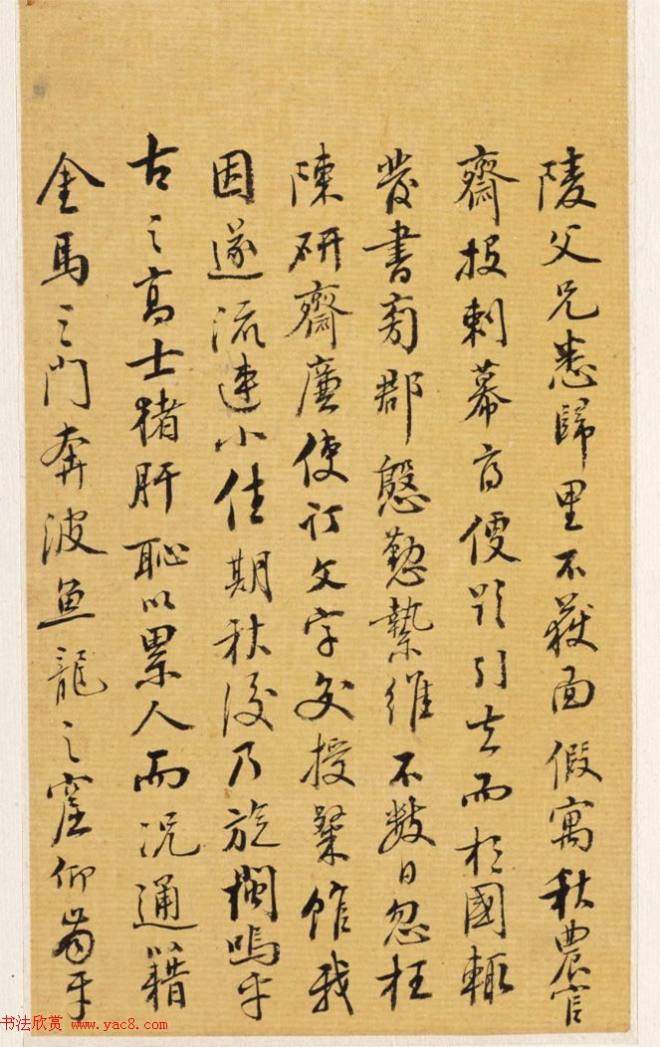 陵父兄悉歸里不獲面假寓秋農官
齋投刺幕府便欲引去而松國輒
發書旁郡慇懃縶維不數日忽枉
陳研齋廉使訂文字交授粲館我
因遂流連小住期秋後乃旋嗚乎
古之高士豬肝恥以累人而況通籍
金馬之門奔波魚龍之窟仰于
书法欣赏 www.yac8.com